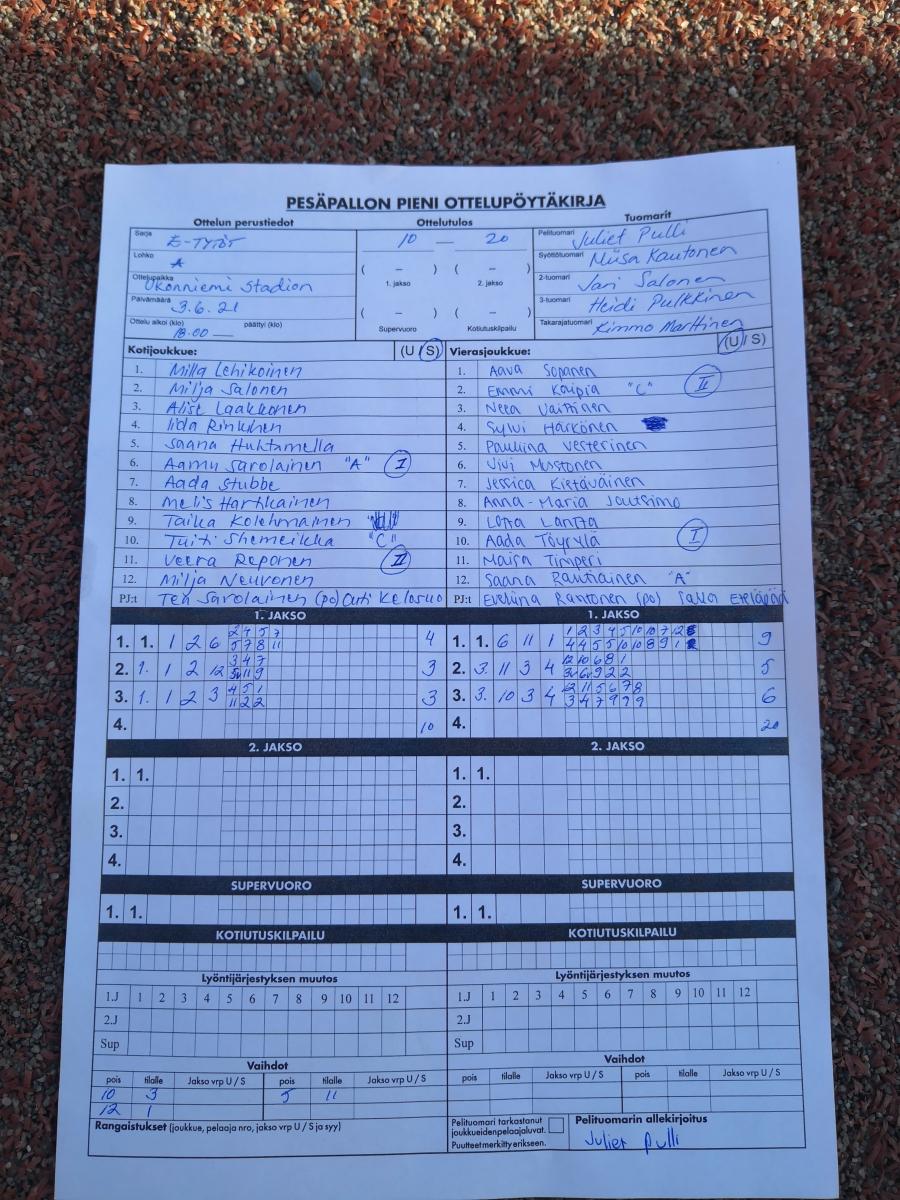 PESÄPALLON PIENI OTTELUPÖYTÄKIRJA
Ottelun perustiedot Ottelutulos Tuomarit
Sarja E-Tytöt 10 — 20 Pelituomari Juliet Pulli
Lohko A Syöttötuomari Miisa Kautonen
( – ) ( – )
Ottelupaikka Ukonniemi Stadion 1. jakso 2. jakso 2-tuomari Jari Salonen
Päivämäärä 3.6.21 3-tuomari Heidi Pulkkinen
( – ) ( – )
Ottelu alkoi (klo) 18.00 — päättyi (klo) Supervuoro Kotiutuskilpailu Takarajatuomari Kimmo Marttinen
Kotijoukkue: (U / S) Vierasjoukkue: (U / S)
1. Milla Lehikoinen 1. Aava Soponen
2. Milja Salonen 2. Emmi Kaipia "C" II
3. Alise Laakkonen 3. Neea Vaittinen
4. Iida Rinkinen 4. Sylvi Härkönen
5. Saana Huhtamella 5. Pauliina Vesterinen
6. Aamu Sarolainen "A" I 6. Vivi Mustonen
7. Aada Stubbe 7. Jessica Kietäväinen
8. Melis Hartikainen 8. Anna-Maria Joutsimo
9. Taika Kolehmainen 9. Lotta Lantta
10. Tuiti Shemeikka "C" 10. Aada Töyrylä I
11. Veera Reponen II 11. Maisa Timperi
12. Milja Neuvonen 12. Saana Rautiainen "A"
PJ:t Teri Sarolainen (po) Outi Kelosuo PJ:t Eveliina Rantonen (po)
1. JAKSO 1. JAKSO
2 4 5 7 1 2 3 4 5 10 10 7 12
1. 1. 1 2 6 5 7 8 11 4 1. 1. 6 11 1 4 4 5 5 10 10 8 9 1 9
3 4 7 12 10 6 8 1
2. 1. 1 2 12 11 9 3 2. 3. 11 3 4 6 9 2 2 5
4 5 1 2 11 5 6 7 8
3. 1. 1 2 3 11 2 2 3 3. 3. 10 3 4 3 4 7 9 7 9 6
4. 10 4. 20
2. JAKSO 2. JAKSO
1. 1. 1. 1.
2. 2.
3. 3.
4. 4.
SUPERVUORO SUPERVUORO
1. 1. 1. 1.
KOTIUTUSKILPAILU KOTIUTUSKILPAILU
Lyöntijärjestyksen muutos Lyöntijärjestyksen muutos
1.J 1 2 3 4 5 6 7 8 9 10 11 12 1.J 1 2 3 4 5 6 7 8 9 10 11 12
2.J 2.J
Sup Sup
Vaihdot Vaihdot
pois tilalle Jakso vrp U / S pois tilalle Jakso vrp U / S pois tilalle Jakso vrp U / S pois tilalle Jakso vrp U / S
10 3 5 11
12 1
Rangaistukset (joukkue, pelaaja nro, jakso vrp U / S ja syy) Pelituomari tarkastanut Pelituomarin allekirjoitus
joukkueiden pelaajaluvat.
Puutteet merkitty erikseen. Juliet Pulli